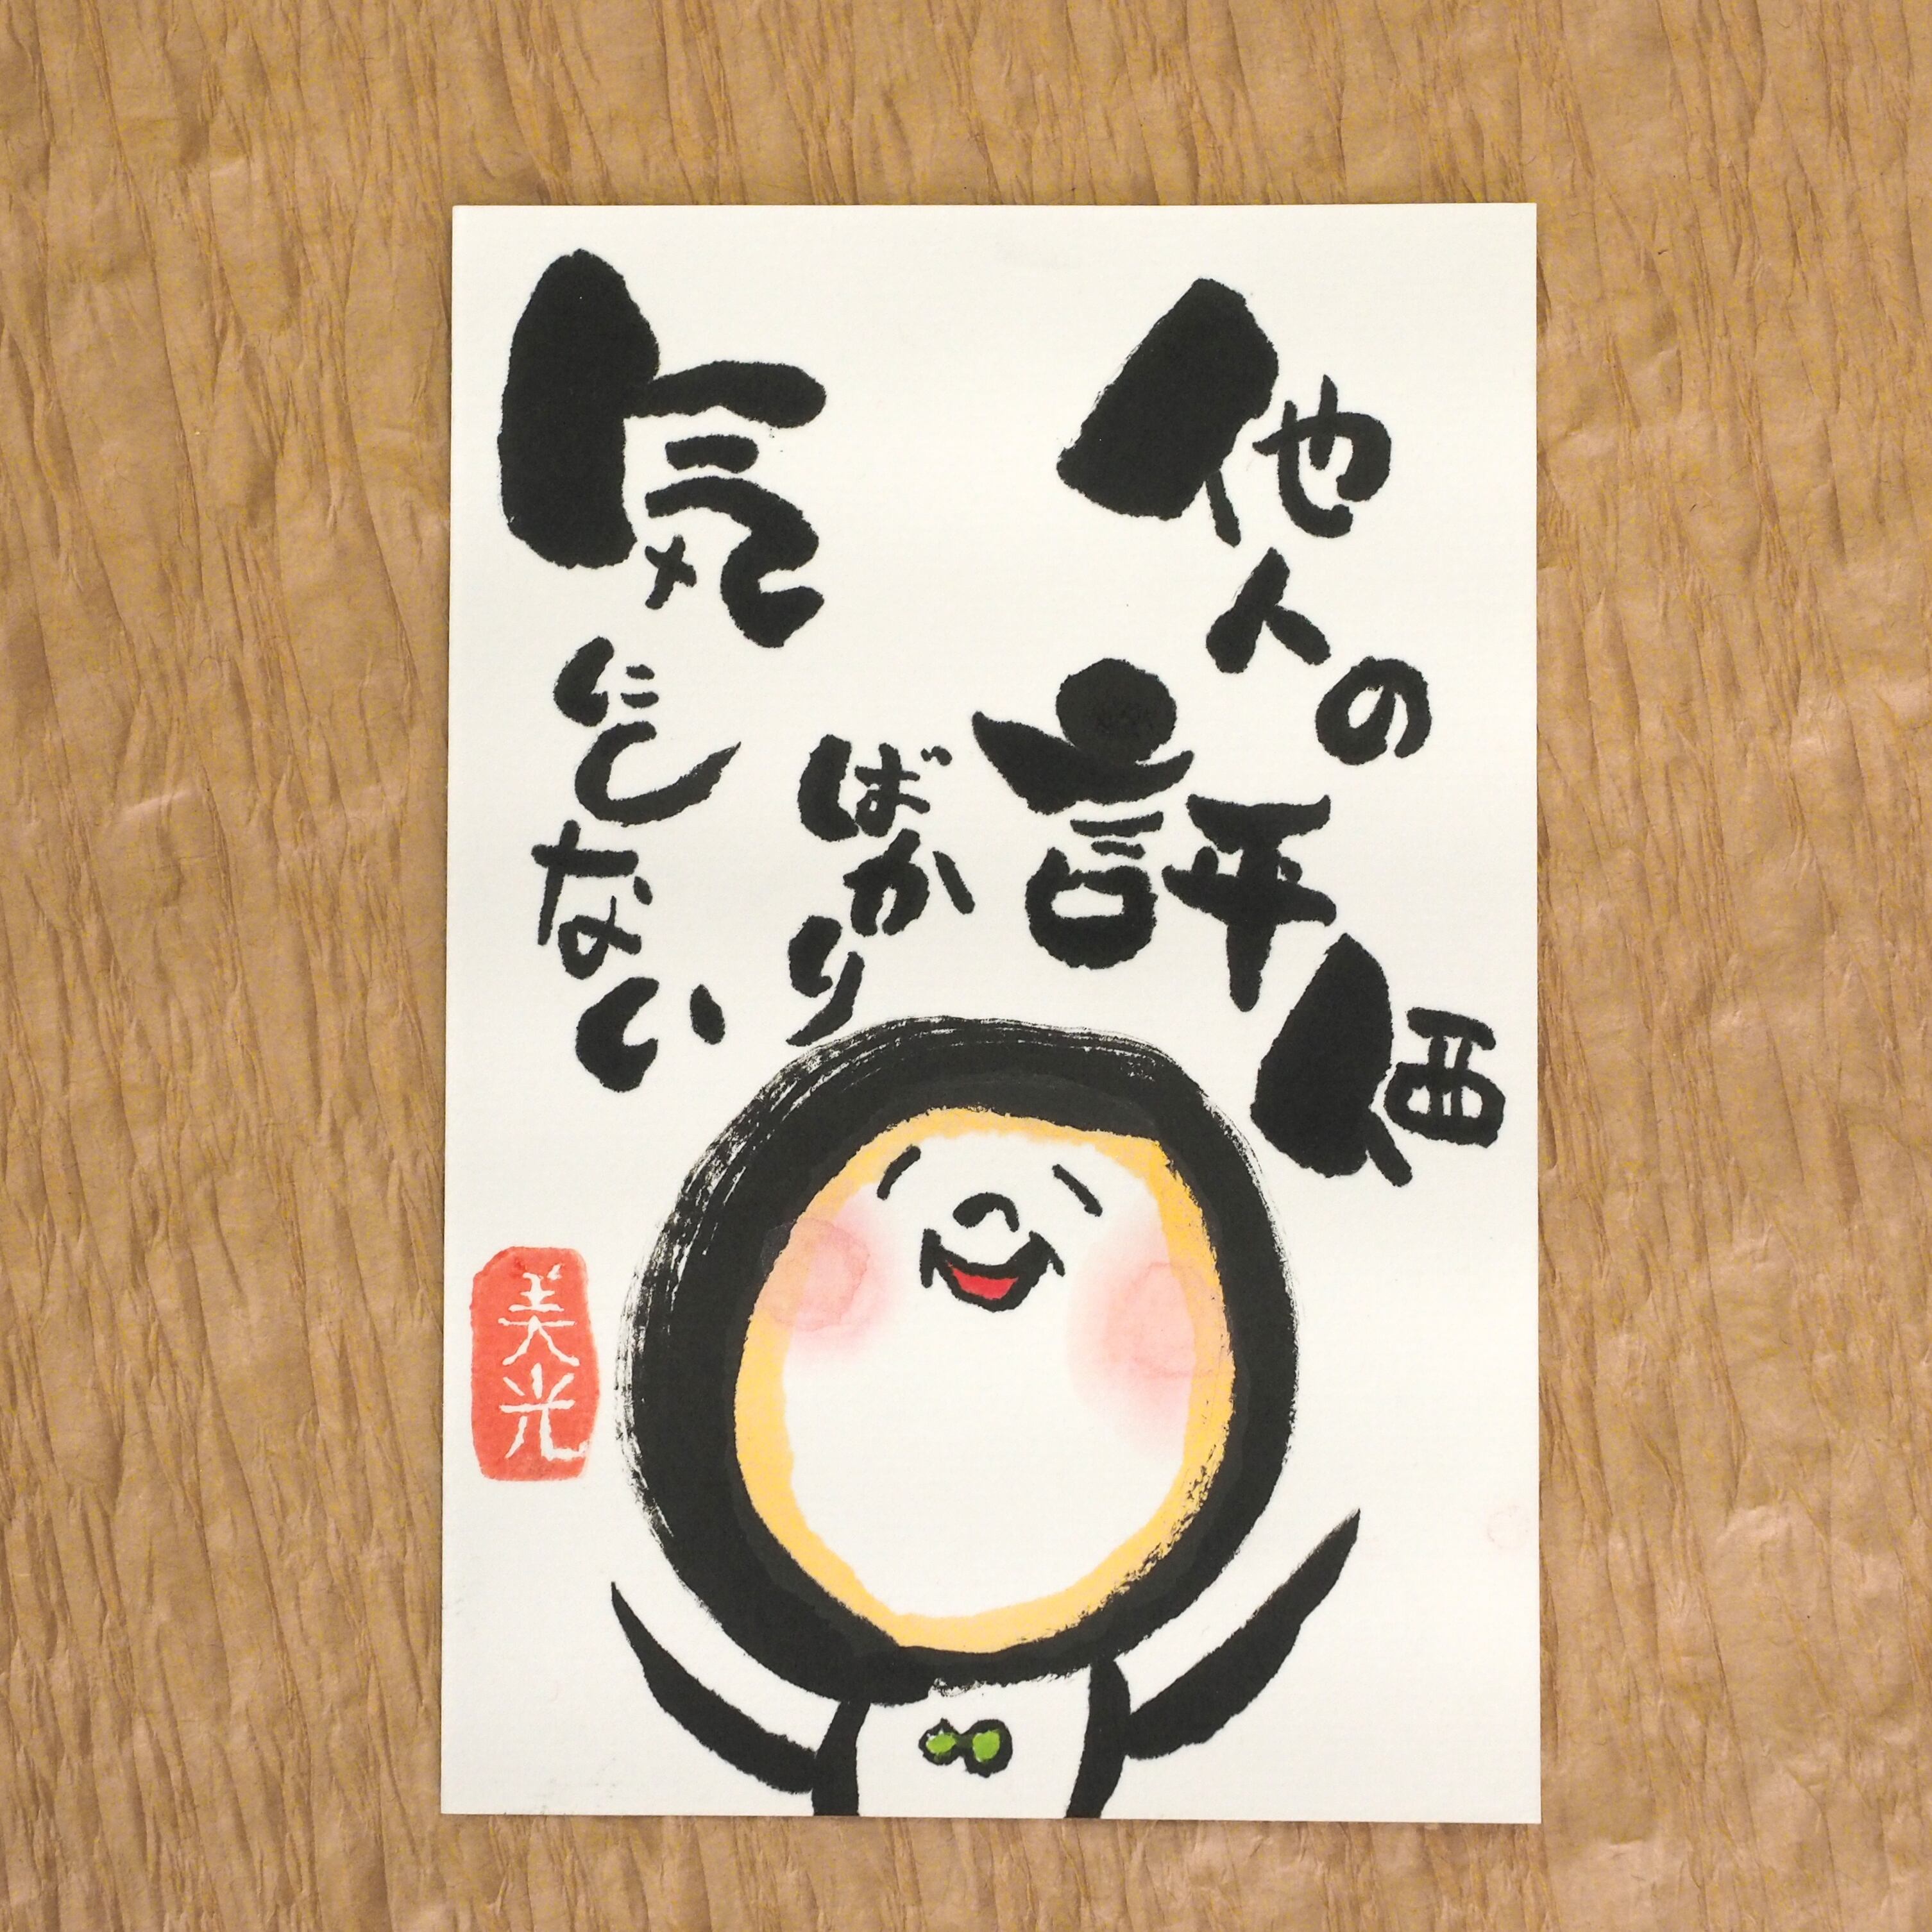 他人の
評価
ばかり
気にしない
美光